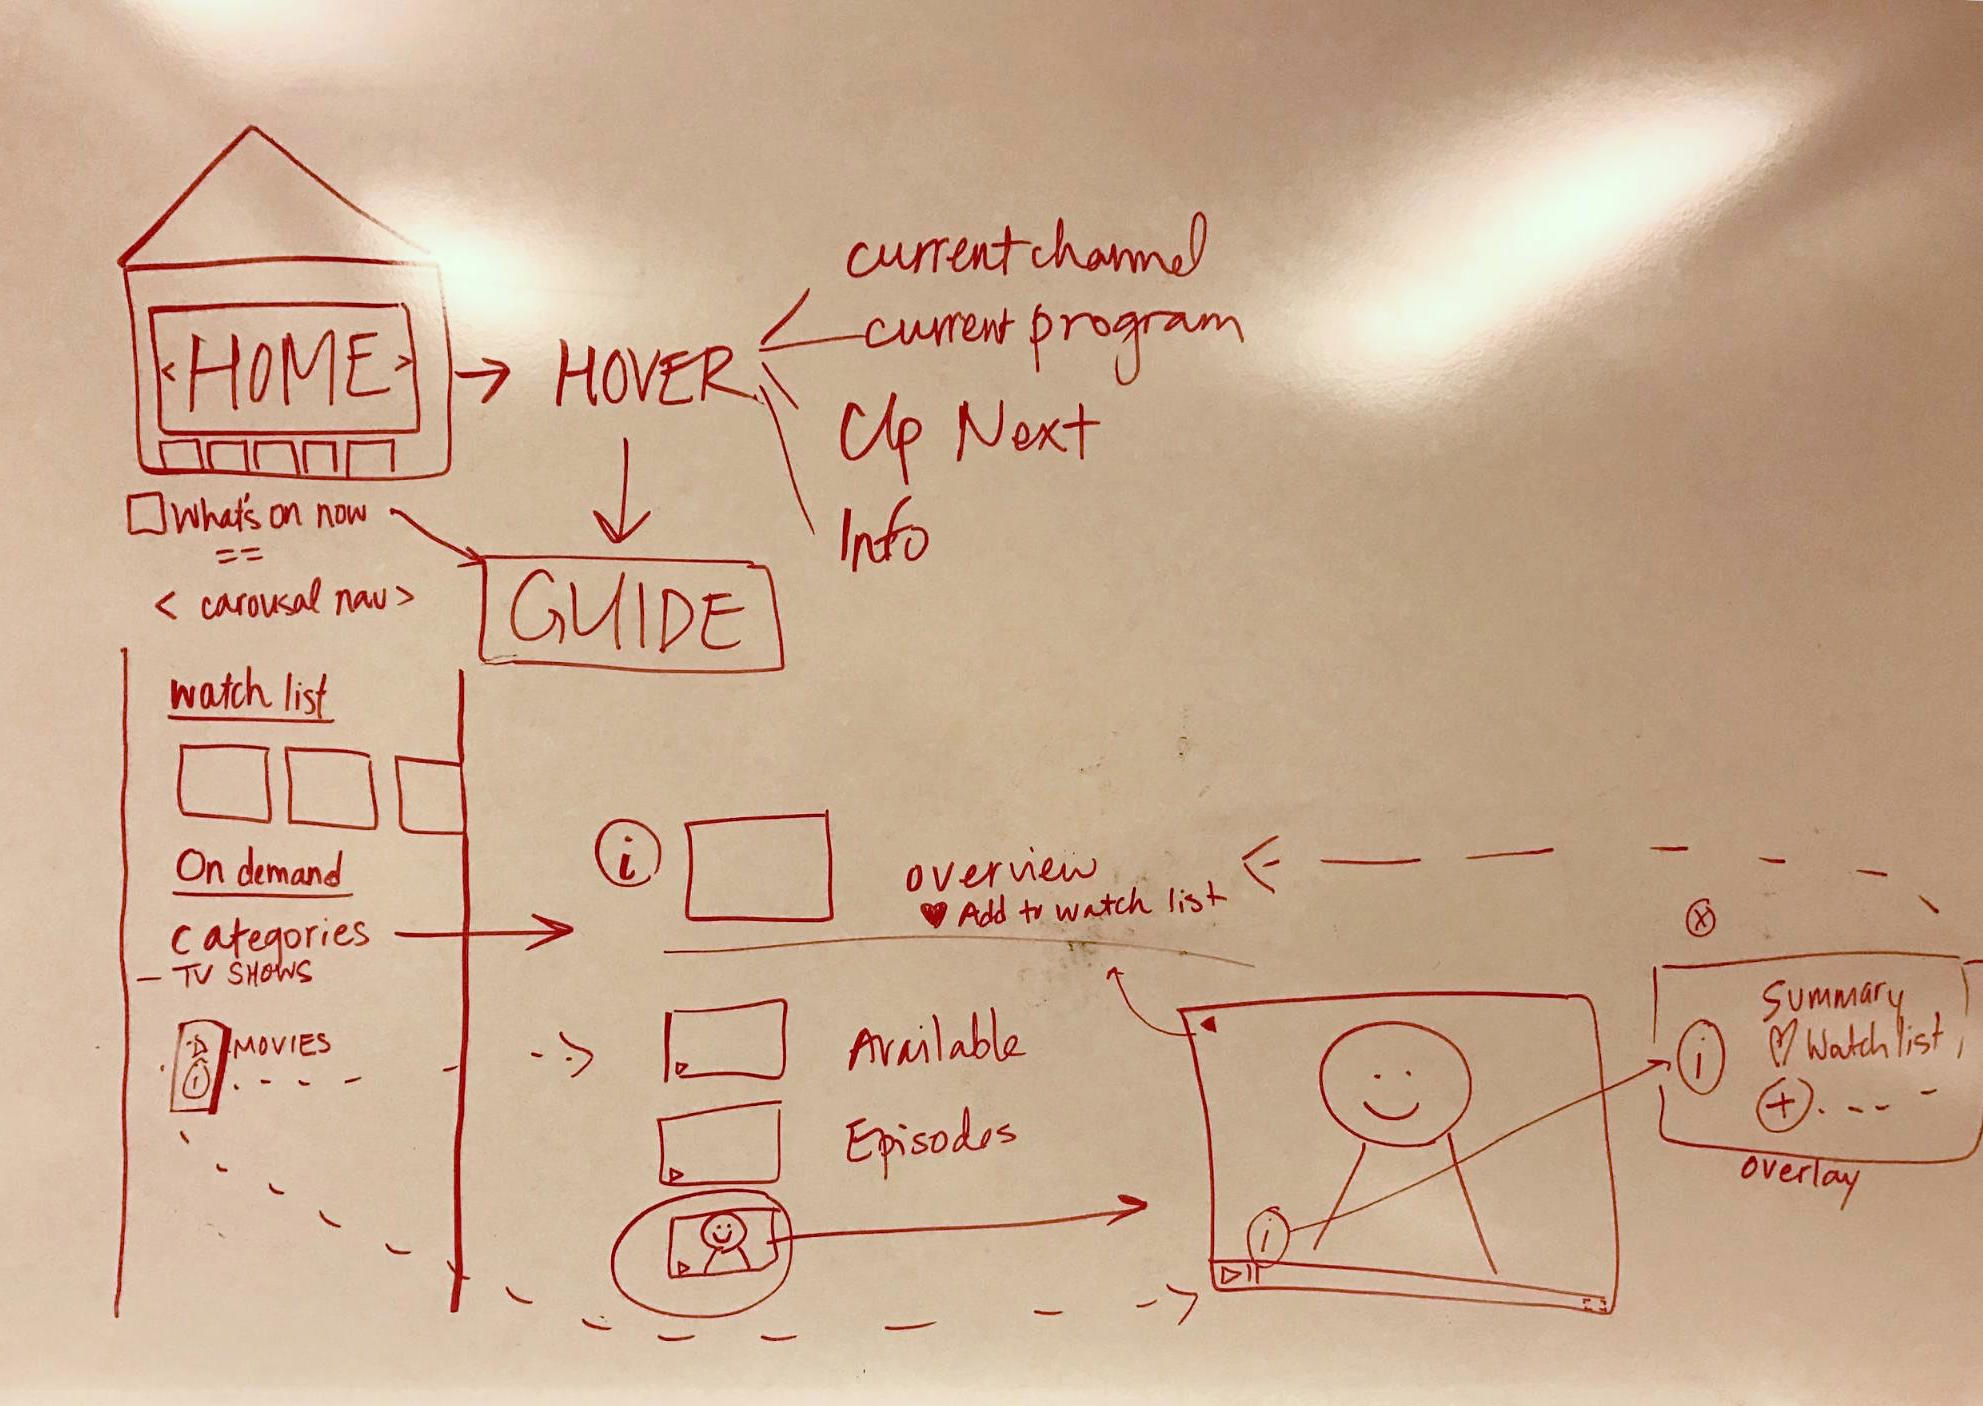 < HOME >
HOVER
current channel
current program
Up Next
Info
What's on now
==
< carousal nav >
GUIDE
watch list
On demand
categories
- TV SHOWS
MOVIES
i
i
overview
♥ Add to watch list
Available
Episodes
i
x
i
Summary
♡ Watch list
+
overlay